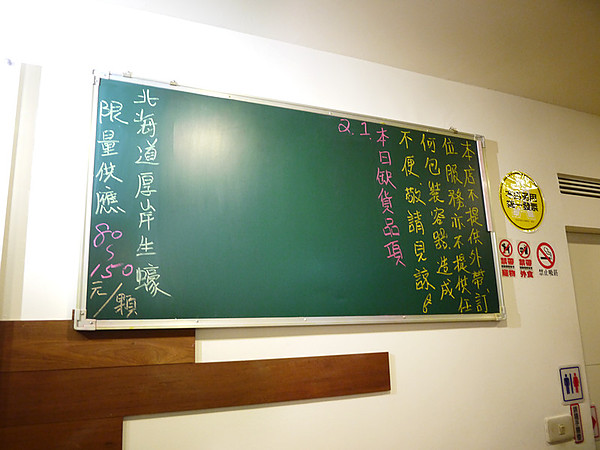 本店不提供外帶訂
位服務亦不提供任
何包裝容器造成
不便 敬請見諒
本日缺貨品項
1.
2.
北海道厚岸生蠔
限量供應 80~150元/顆
統一發票
禁帶寵物
禁帶外食
禁止吸菸